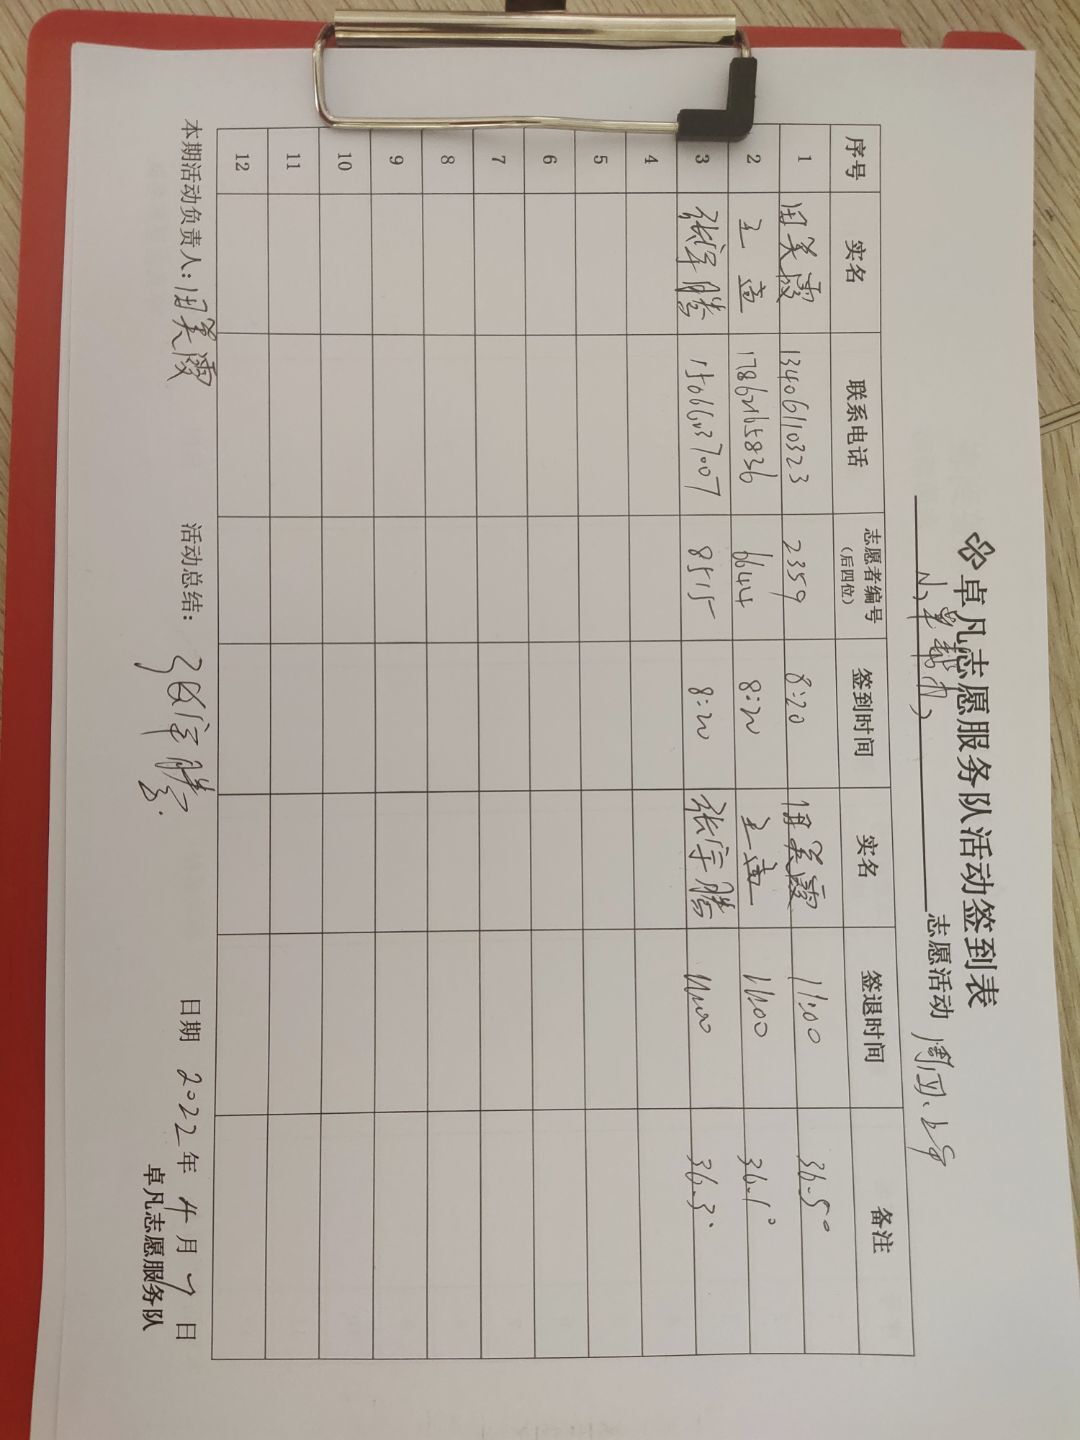 卓凡志愿服务队活动签到表
志愿活动 周四.上午
序号 实名 联系电话 志愿者编号（后四位） 签到时间 实名 签退时间 备注
1 田美霞 13406110323 2359 8:20 田美霞 11:00 36.5°
2 王 17862165836 6644 8:20 王 11:00 36.1°
3 张宇腾 15066037007 8515 8:20 张宇腾 11:00 36.3°
4
5
6
7
8
9
10
11
12
本期活动负责人：田美霞 活动总结：张宇腾 日期 2022年4月7日
卓凡志愿服务队